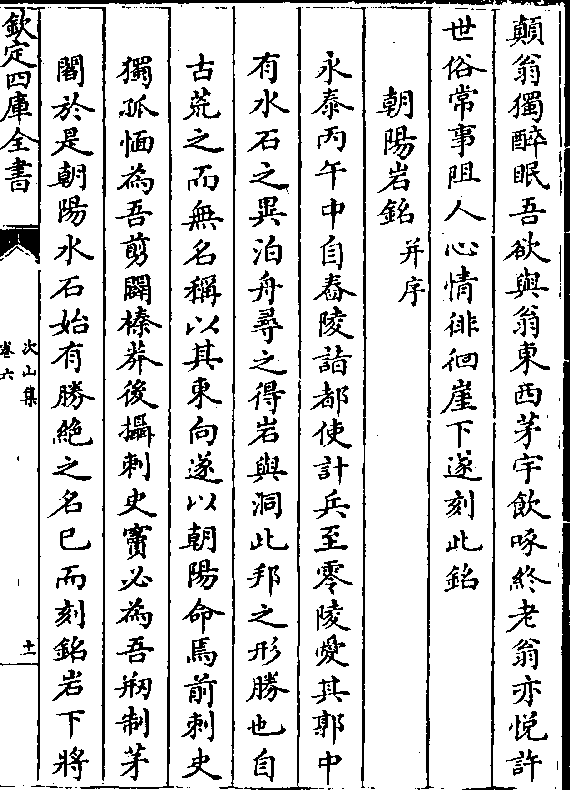 顛翁獨醉眠吾欲與翁東西茅宇飲啄終老翁亦悅許
世俗常事阻人心情徘徊崖下遂刻此銘
朝陽岩銘并序
永泰丙午中自舂陵詣都使計兵至零陵愛其郭中
有水石之異泊舟尋之得岩與洞此邦之形勝也自
古荒之而無名稱以其東向遂以朝陽命焉前刺史
獨孤愐為吾剪闢榛莽後攝刺史竇必為吾剏制茅
閣於是朝陽水石始有勝絶之名已而刻銘岩下將
欽定四庫全書
次山集
卷六
十一